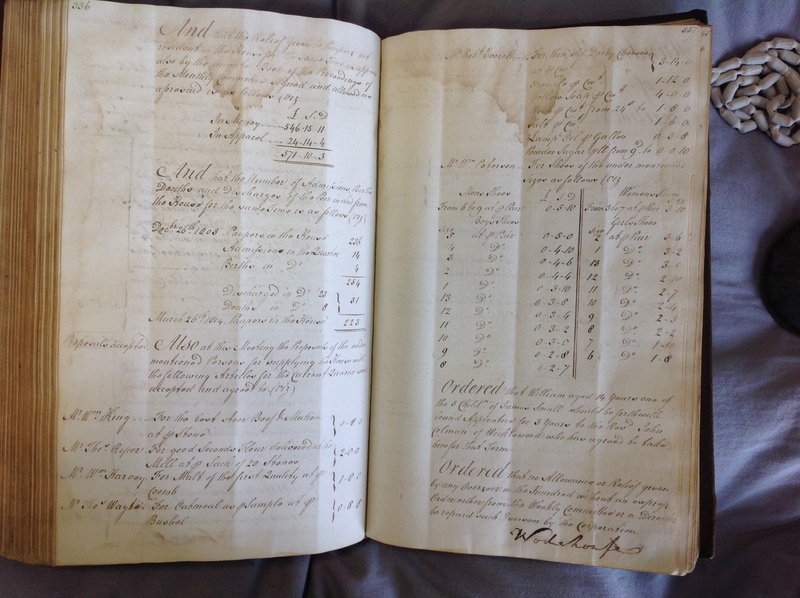 336
And that the Relief given to Paupers not
resident in the House for the same Time as appears
also by the minute Book of the Proceedings of
the Monthly Committee is Good and allowed as
aforesaid is as follows (Viz)
£ S D
In Money 546-15-11
In Apparel 24-14-4
571-10-3
And that the Number of Admissions, Births
Deaths and Discharges of the Poor in and from
the House for the same Time is as follows (Viz)
Paupers in the House 236
Admissions in the Quarter 14
Births in Do 4
254
Discharged in Do 23
Deaths in Do 8 } 31
March 25th 1804. Paupers in the House 223
Proposals accepted Also at this Meeting the Proposals of the under
mentioned Persons for supplying the House with
the following Articles for the Current Quarter were
accepted and agreed to (Viz)
Mr Wm King For the best Beef & Mutton
at p Stone } 0-8-0
Mr Thos For good Seconds Flour delivered at the
Mill at p Sack of 20 Stones } 2-0-0
Mr Wm Harvey For Malt of the first Quality at p
Coomb } 1-0-0
Mr Thos For Oatmeal as p Sample at p
Bushel } 0-8-8
Mr Robt For Derby Cheese
at p Cwt } 3-14-0
p Cwt 1-12-0
Soap p Cwt 4-0-0
p Cwt from 24th to 1-8-0
Salt p Cwt 1-6-0
Lamp Oil p Gallon 0-3-8
Powder Sugar p lb from 9d to 0-0-10
Mr Wm Paterson For Shoes of the under mentioned
Sizes as follows (Viz)
Mens Shoes £ S D Womens Shoes
From 6 to 9 at p Pair 0-5-10 From 3 to 7 at p Pair 3-10
Boys Shoes Girls Shoes
Size 5 at p Pair 0-5-0 Size 2 at p Pair
4 Do 0-4-10 1 Do 3-2
3 Do 0-4-6 13 Do 3-0
2 Do 0-4-4 12 Do
1 Do 0-3-10 11 Do 2-7
13 Do 0-3-8 10 Do
12 Do 0-3-4 9 Do
11 Do 0-3-2 8 Do 2-2
10 Do 0-3-0 7 Do 1-10
9 Do 0-2-8 6 Do 1-8
8 Do 0-2-7
Ordered that William aged 14 Years one of
the 5 Children of James Small should be forthwith
bound Apprentice for 3 Years to the Revd John
Colman of who has agreed to take
him for that Term
Ordered that no Allowance or Relief given
by any Overseer in the Hundred without an express
Order either from the Weekly Committee or a Director
be repaid such Overseer by the Corporation
Wodehouse